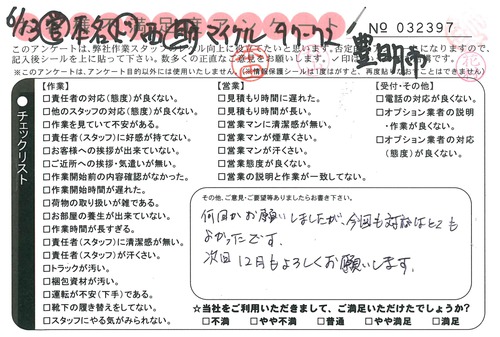 6/23
お客様満足度アンケート
№ 032397
豊明市
このアンケートは、弊社作業スタッフの
記入後シールを上に貼って下さい。数多くの正直なご意見をお願いします。
※このアンケートは、アンケート目的以外には使用いたしません。(※情報保護シールは1度はがすと、再度貼ることはできません。)
チェックリスト
【作業】
□責任者の対応(態度)が良くない。
□他のスタッフの対応(態度)が良くない。
□作業を見ていて不安がある。
□責任者(スタッフ)に好感が持てない。
□お客様への挨拶が出来ていない。
□ご近所への挨拶・気遣いが無い。
□作業開始前の内容確認がなかった。
□作業開始時間が遅れた。
□荷物の取り扱いが雑である。
□お部屋の養生が出来ていない。
□作業時間が長すぎる。
□責任者(スタッフ)に清潔感が無い。
□責任者(スタッフ)が汗くさい。
□トラックが汚い。
□梱包資材が汚い。
□運転が不安(下手)である。
□靴下の履き替えをしてない。
□スタッフにやる気がみられない。
【営業】
□見積もり時間に遅れた。
□見積もり時間が長い。
□営業マンに清潔感が無い。
□営業マンが煙草くさい。
□営業マンが汗くさい。
□営業態度が良くない。
□営業の説明と作業が一致してない。
【受付・その他】
□電話の対応が良くない。
□オプション業者の説明・作業が良くない。
□オプション業者の対応(態度)が良くない。
その他、ご意見・ご要望等ありましたらお書き下さい。
何回かお願いしましたが、今回も対応はとても
よかったです。
次回12月もよろしくお願いします。
☆当社をご利用いただきまして、ご満足いただけたでしょうか?
□不満 □やや不満 □普通 □やや満足 □満足